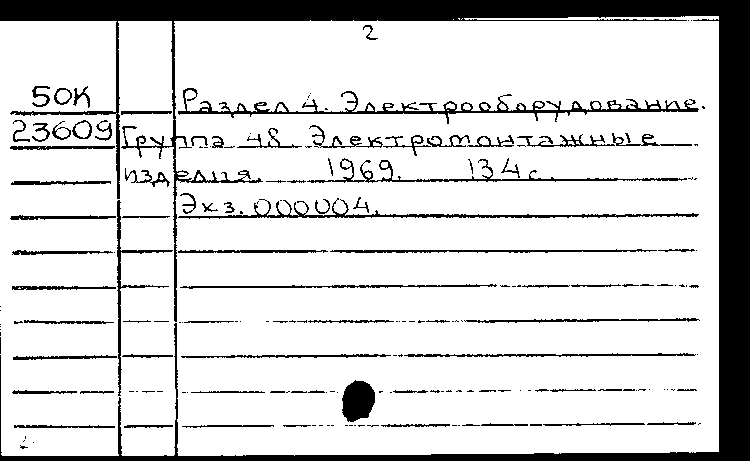 2
50К Раздел 4. Электрооборудование.
23609 Группа 48. Электромонтажные
изделия. 1969. 134 с.
Экз. 000004.